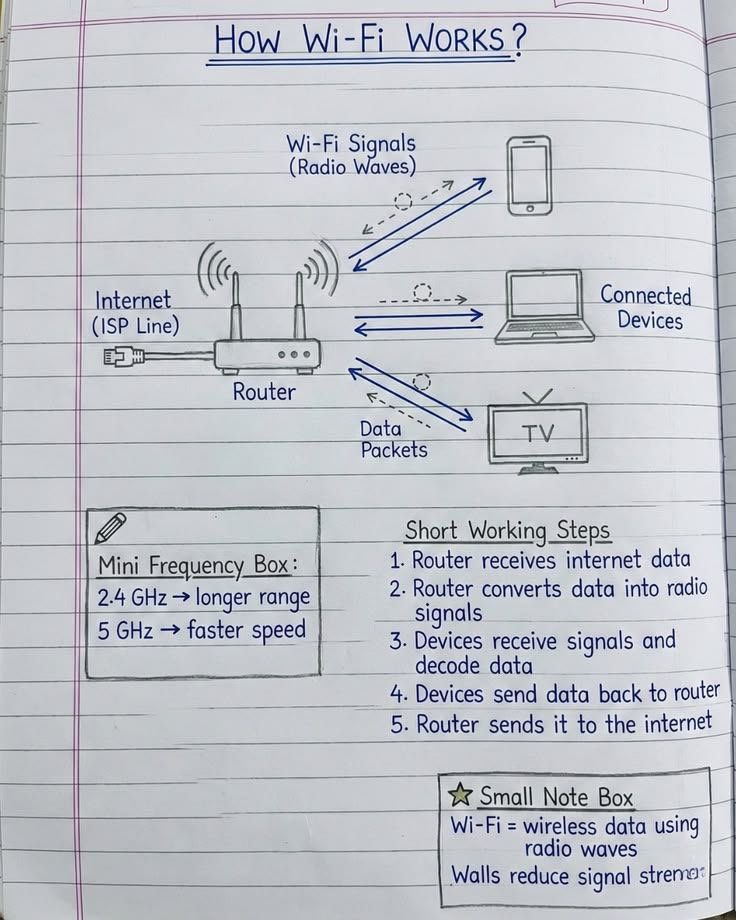 How Wi-Fi Works?
Wi-Fi Signals
(Radio Waves)
Internet
(ISP Line)
Connected
Devices
Router
Data
Packets
TV
Mini Frequency Box:
2.4 GHz → longer range
5 GHz → faster speed
Short Working Steps
1. Router receives internet data
2. Router converts data into radio
signals
3. Devices receive signals and
decode data
4. Devices send data back to router
5. Router sends it to the internet
Small Note Box
Wi-Fi = wireless data using
radio waves
Walls reduce signal